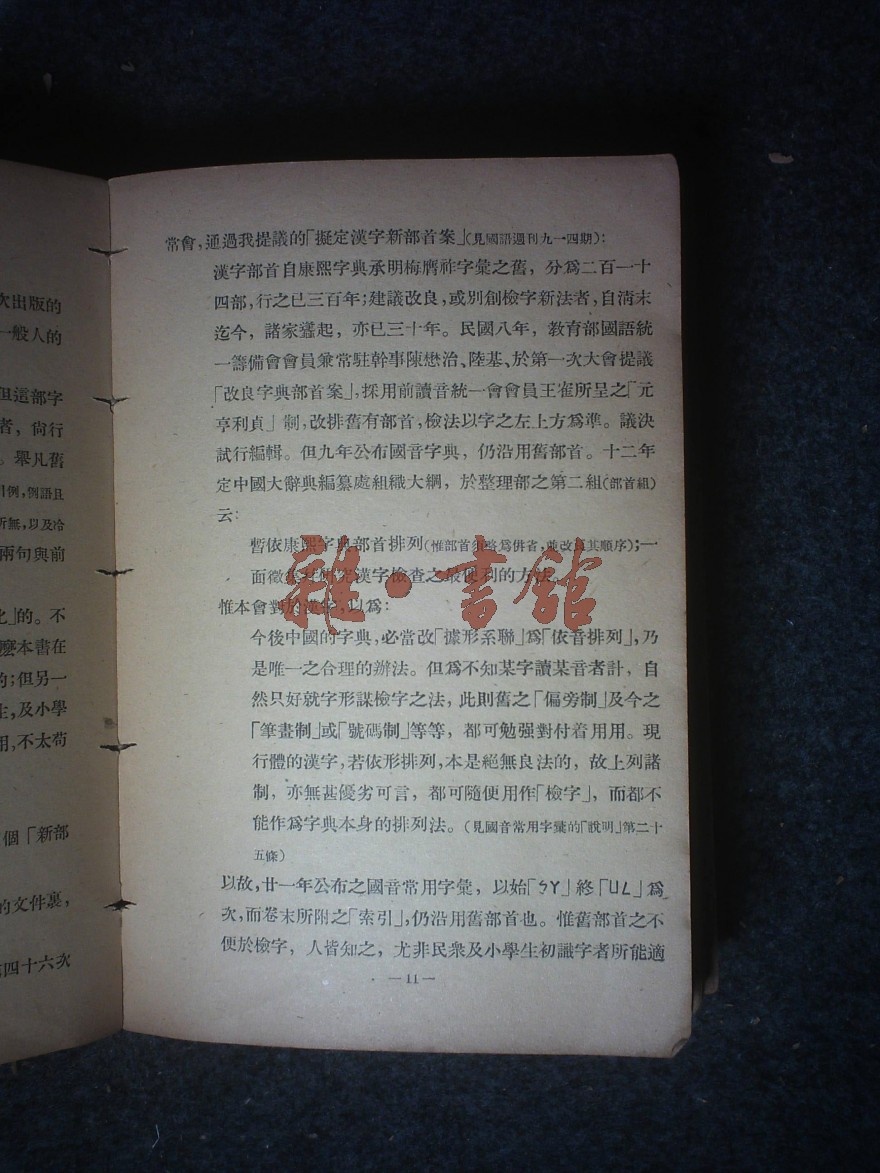 次出版的
一般人的
但這部字
者，尙行
。舉凡舊
用例，例語且
所無，以及冷
兩句與前
化」的。不
麽本書在
的；但另一
生，及小學
用，不太苟
個「新部
的文件裏，
第四十六次
常會，通過我提議的「擬定漢字新部首案」(見國語週刊九一四期)：
漢字部首自康熙字典承明梅膺祚字彙之舊，分爲二百一十
四部，行之已三百年；建議改良，或別創檢字新法者，自淸末
迄今，諸家蠭起，亦已三十年。民國八年，教育部國語統
一籌備會會員兼常駐幹事陳懋治、陸基、於第一次大會提議
「改良字典部首案」，採用前讀音統一會會員王崔所呈之「元
亨利貞」制，改排舊有部首，檢法以字之左上方爲準。議決
試行編輯。但九年公布國音字典，仍沿用舊部首。十二年
定中國大辭典編纂處組織大綱，於整理部之第二組(部首組)
云：
暫依康熙字典部首排列(惟部首須略爲倂省，並改良其順序)；一
面徵集研究漢字檢查之最便利的方法。
惟本會對於漢字，以爲：
今後中國的字典，必當改「據形系聯」爲「依音排列」，乃
是唯一之合理的辦法。但爲不知某字讀某音者計，自
然只好就字形謀檢字之法，此則舊之「偏旁制」及今之
「筆畫制」或「號碼制」等等，都可勉强對付着用用。現
行體的漢字，若依形排列，本是絕無良法的，故上列諸
制，亦無甚優劣可言，都可隨便用作「檢字」，而都不
能作爲字典本身的排列法。(見國音常用字彙的「說明」第二十
五條)
以故，廿一年公布之國音常用字彙，以始「ㄅㄚ」終「ㄩㄥ」爲
次，而卷末所附之「索引」，仍沿用舊部首也。惟舊部首之不
便於檢字，人皆知之，尤非民衆及小學生初識字者所能適
—11—
雜·書館